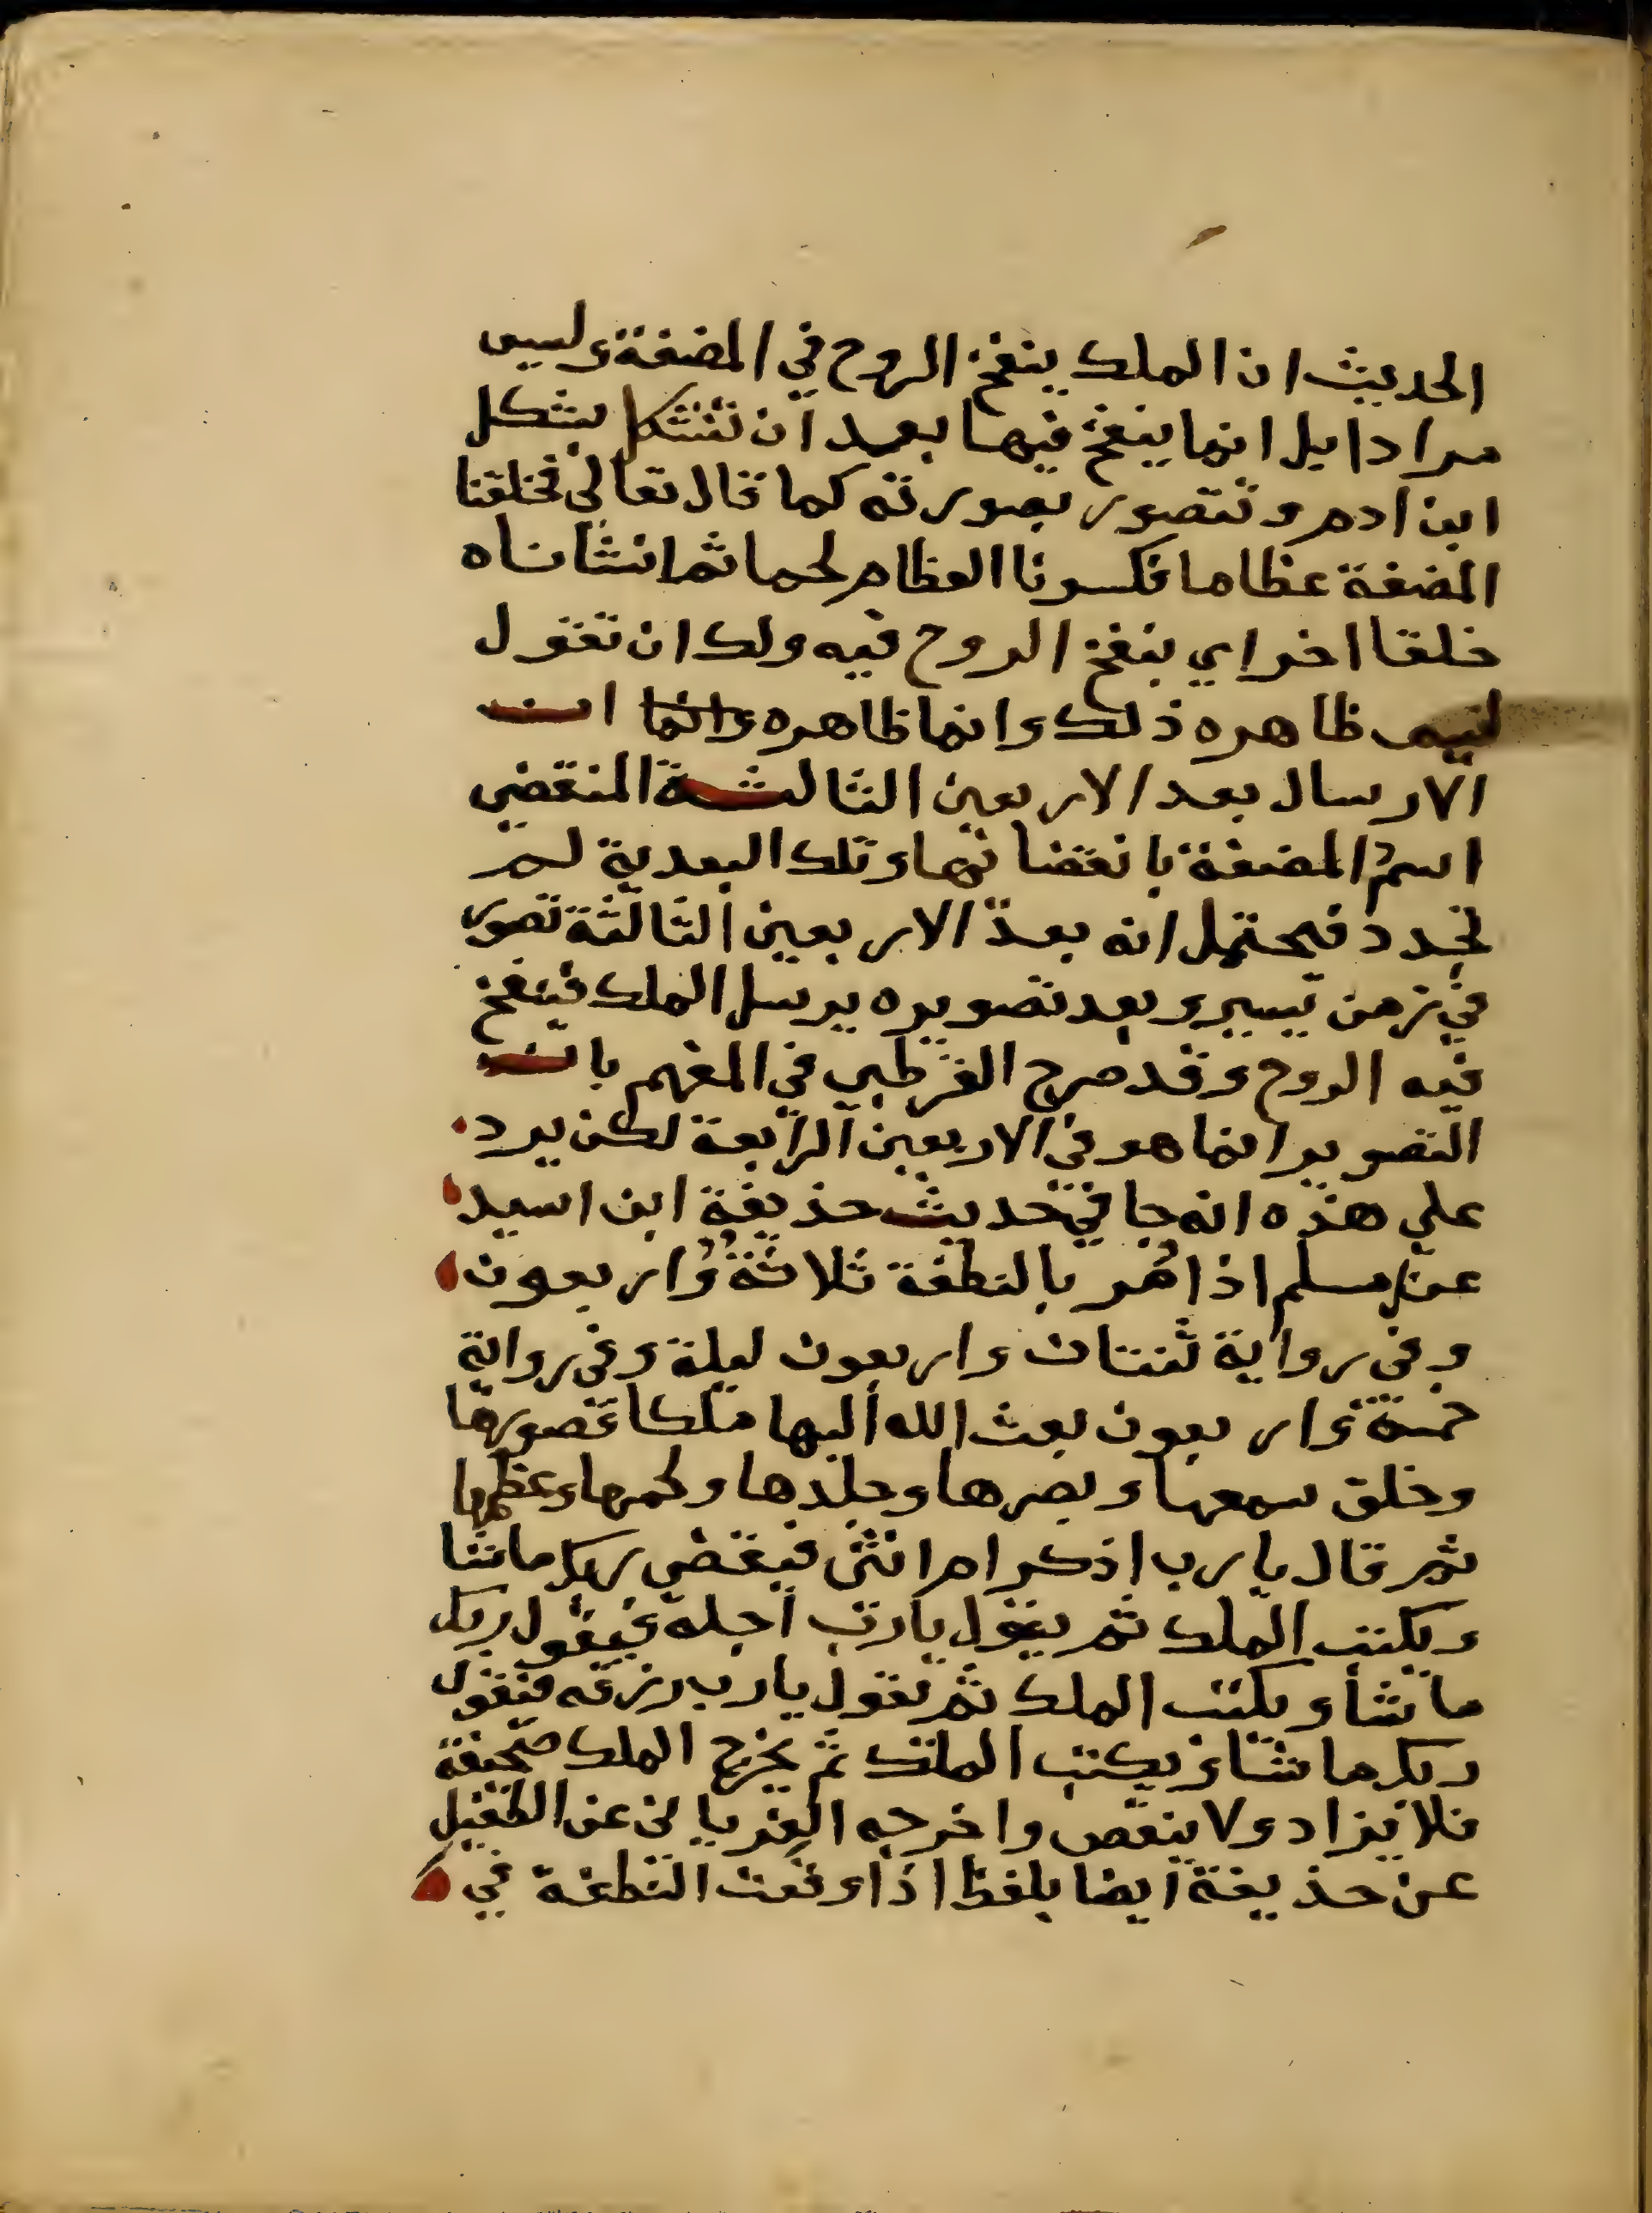 الحديث ان الملك ينفخ الروح في المضغة وليس
مرادا بل انما ينفخ فيها بعد ان تتشكل بشكل
ابن ادم وتتصور بصورته كما قال تعالى فخلقنا
المضغة عظاما فكسونا العظام لحما ثم انشاناه
خلقا اخر اي بنفخ الروح فيه ولك ان تقول
ليس ظاهره ذلك وانما ظاهره وانما ان
الارسال بعد الاربعين الثالثة المنقضي
اسم المضغة بانقضائها وتلك البعدية لم
تحدد فيحتمل انه بعد الاربعين الثالثة تصور
في زمن يسير وبعد تصويره يرسل الملك فينفخ
فيه الروح وقد صرح القرطبي في المفهم بان
التصوير انما هو في الاربعين الرابعة لكن يرد
على هذه انه جا في حديث حذيفة ابن اسيد
عن مسلم اذا مر بالنطفة ثلاثة واربعون
وفي رواية ثنتان واربعون ليلة وفي رواية
خمسة واربعون بعث الله اليها ملكا فصورها
وخلق سمعها وبصرها وجلدها ولحمها وعظمها
ثم قال يا رب اذكر ام انثى فيقضي ربك ما شا
ويكتب الملك ثم يقول يارب اجله فيقول ربك
ما شا ويكتب الملك ثم يقول يا رب رزقه فيقول
ربك ما شا ويكتب الملك ثم يخرج الملك صحيفة
فلا يزاد ولا ينقص واخرجه الفريابي عن الطفيل
عن حذيفة ايضا بلفظ اذا وقعت النطفة في